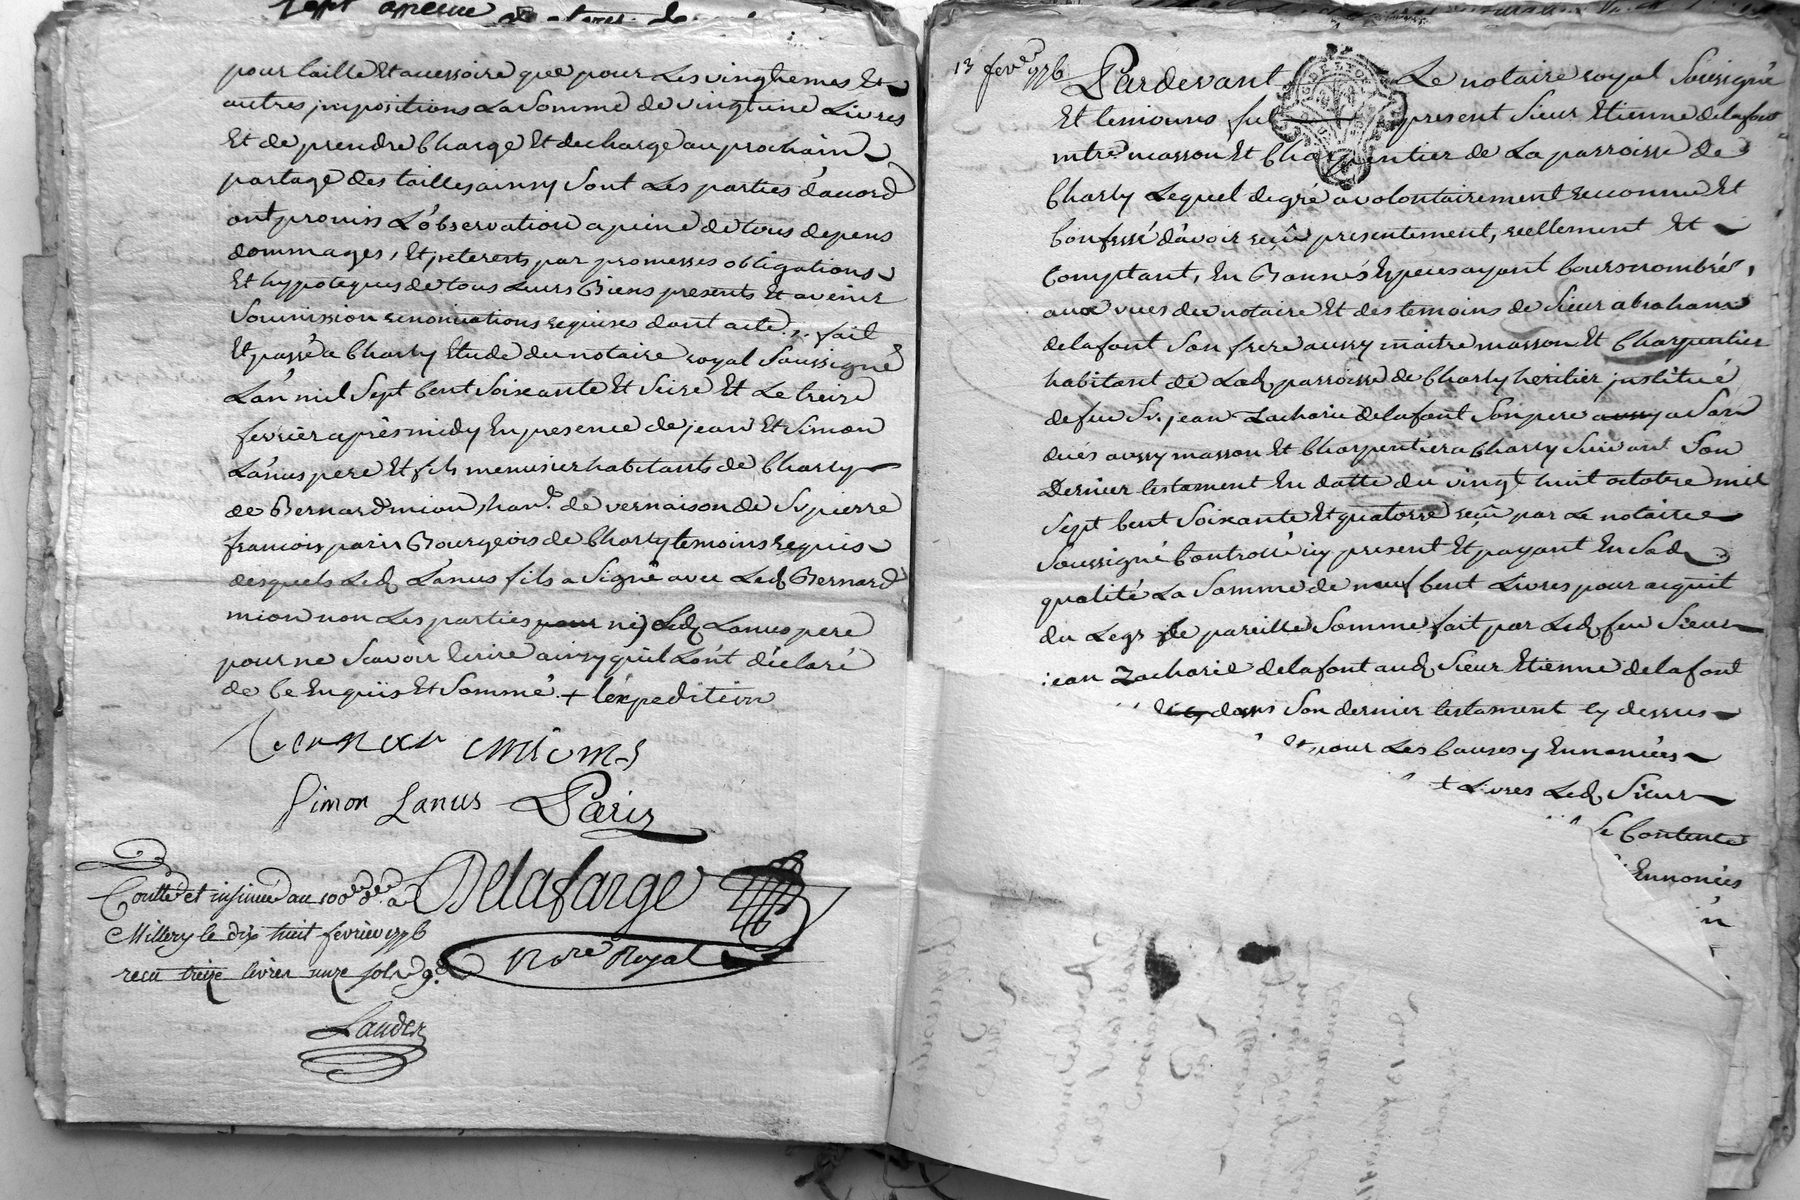 pour taille Et accessoire que pour Les vingtiemes Et
autres jmpositions La Somme de vingt une Livres
Et de prendre Charge Et decharge au prochain
partage des tailles ainsy Sont Les parties d'acord
ont promis L'observation a peine de tous depens
dommages, Et jnterests, par promesses obligations
Et hypoteques de tous Leurs Biens presents Et avenir
Soumission renonciations requises dont acte, fait
Et passé a Charly Etude du notaire royal Soussigné
L'an mil Sept Cent Soixante Et Seize Et Le treize
fevrier après midy En presence de jean Et Simon
Lanus pere Et fils menusier habitants de Charly
de Bernard mion, de vernaison de Sr. pierre
francois paris Bourgeois de Charly temoins requis
desquels Led. Lanus fils a Signé avec Led. Bernard
mion non Les parties pour ni Led. Lanus pere
pour ne Scavoir Ecrire ainsy qu'il L'ont déclaré
de Ce Enquis Et Sommé. + l'éxpedition
Simon Lanus Paris
Delafarge
Nore Royal
Contlé et insinué au 100e d. a
Millery le dix huit fevrier 1776
reçu treize livres onze sols 9d.
13 fevr 1776
Pardevant Le notaire royal Soussigné
Et temoins fut present Sieur Etienne delafont
mtre masson Et Charpentier de La parroisse de
Charly Lequel de gré a volontairement reconnu Et
Confessé d'avoir reçû presentement, reellement Et
Comptant, En Bonnes Especes ayant Cours nombrés,
aux vues du notaire Et des temoins de Sieur abraham
delafont Son frere aussy maitre masson Et Charpentier
habitant de Lad. parroisse de Charly heritier jnstitué
de feu Sr. jean Zacharie delafont Son pere aussy
aussy masson Et Charpentier a Charly Suivant Son
Dernier testament En datte du vingt huit octobre mil
Sept Cent Soixante Et quatorze reçû par Le notaire
Soussigné Controllé icy present Et payant En Sad.
qualité La Somme de neuf Cent Livres pour acquit
du Legs de pareille Somme fait par Led. feu Sieur
jean Zacharie delafont aud. Sieur Etienne delafont
dans Son dernier testament cy dessus
Et pour Les Causes y Ennoncées
Livres Led. Sieur
Se Contente
Ennoncées